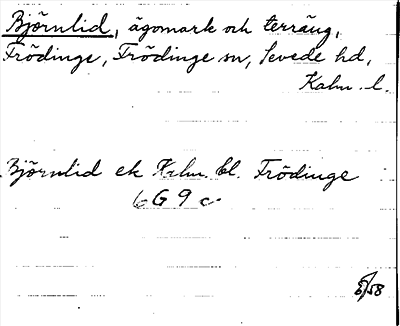 Björnlid, ägomark och terräng,
Frödinge, Frödinge sn, Sevede hd,
Kalm. l.
Björnlid ek Kalm. bl. Frödinge
6 G 9 c
/58